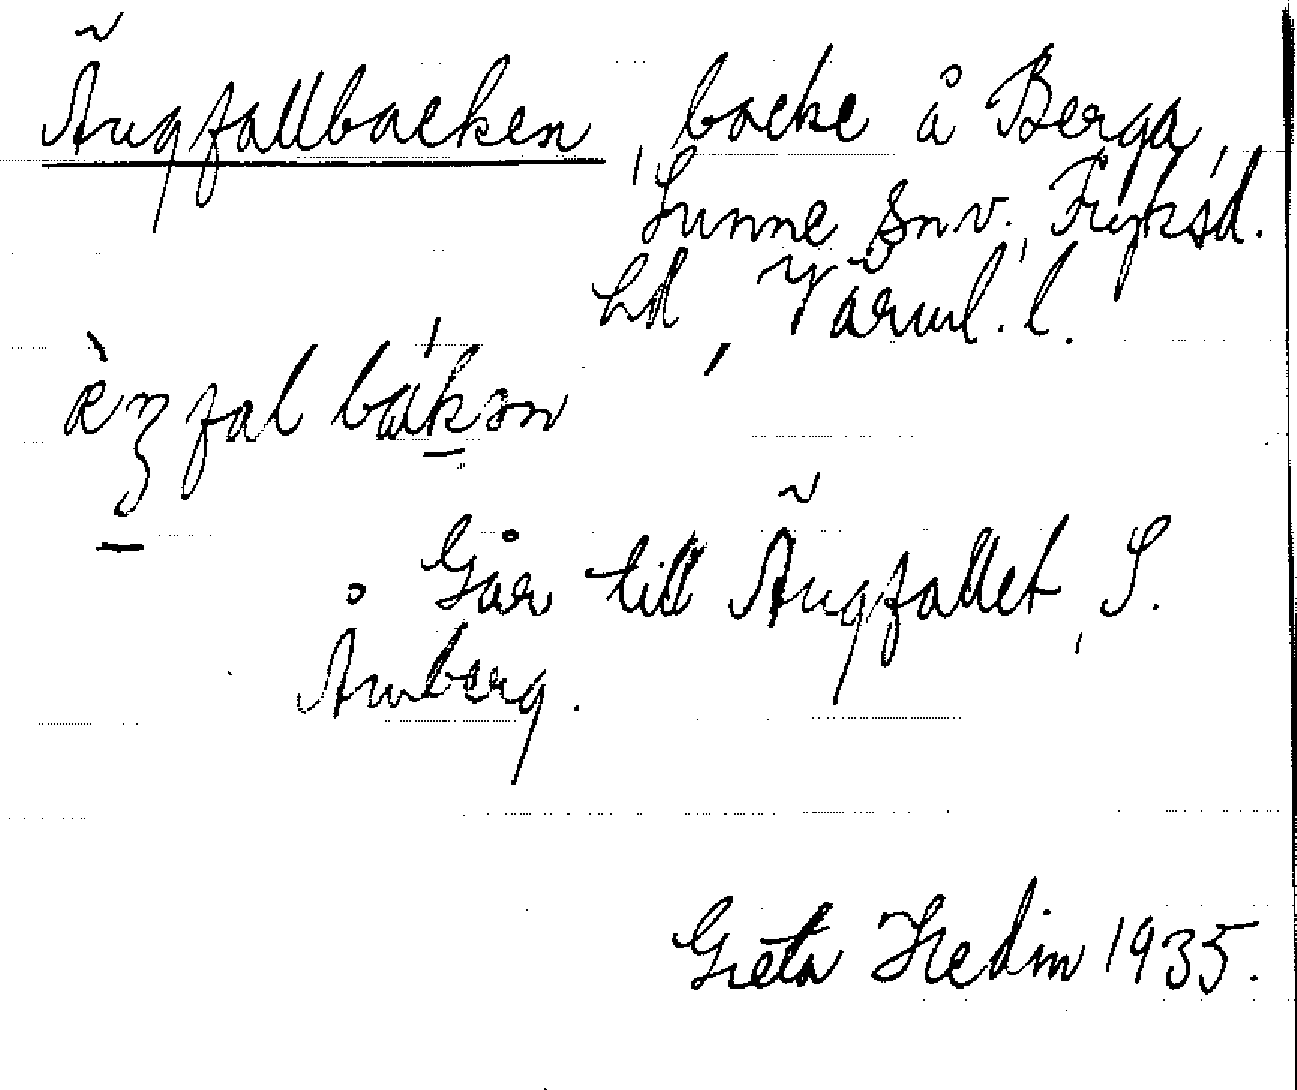 Ängfallbacken, backe å Berga,
Sunne sn v., Fryksd.
hd, Värml. l.
Går till Ängfallet, S.
Åmberg.
Greta Hedin 1935.